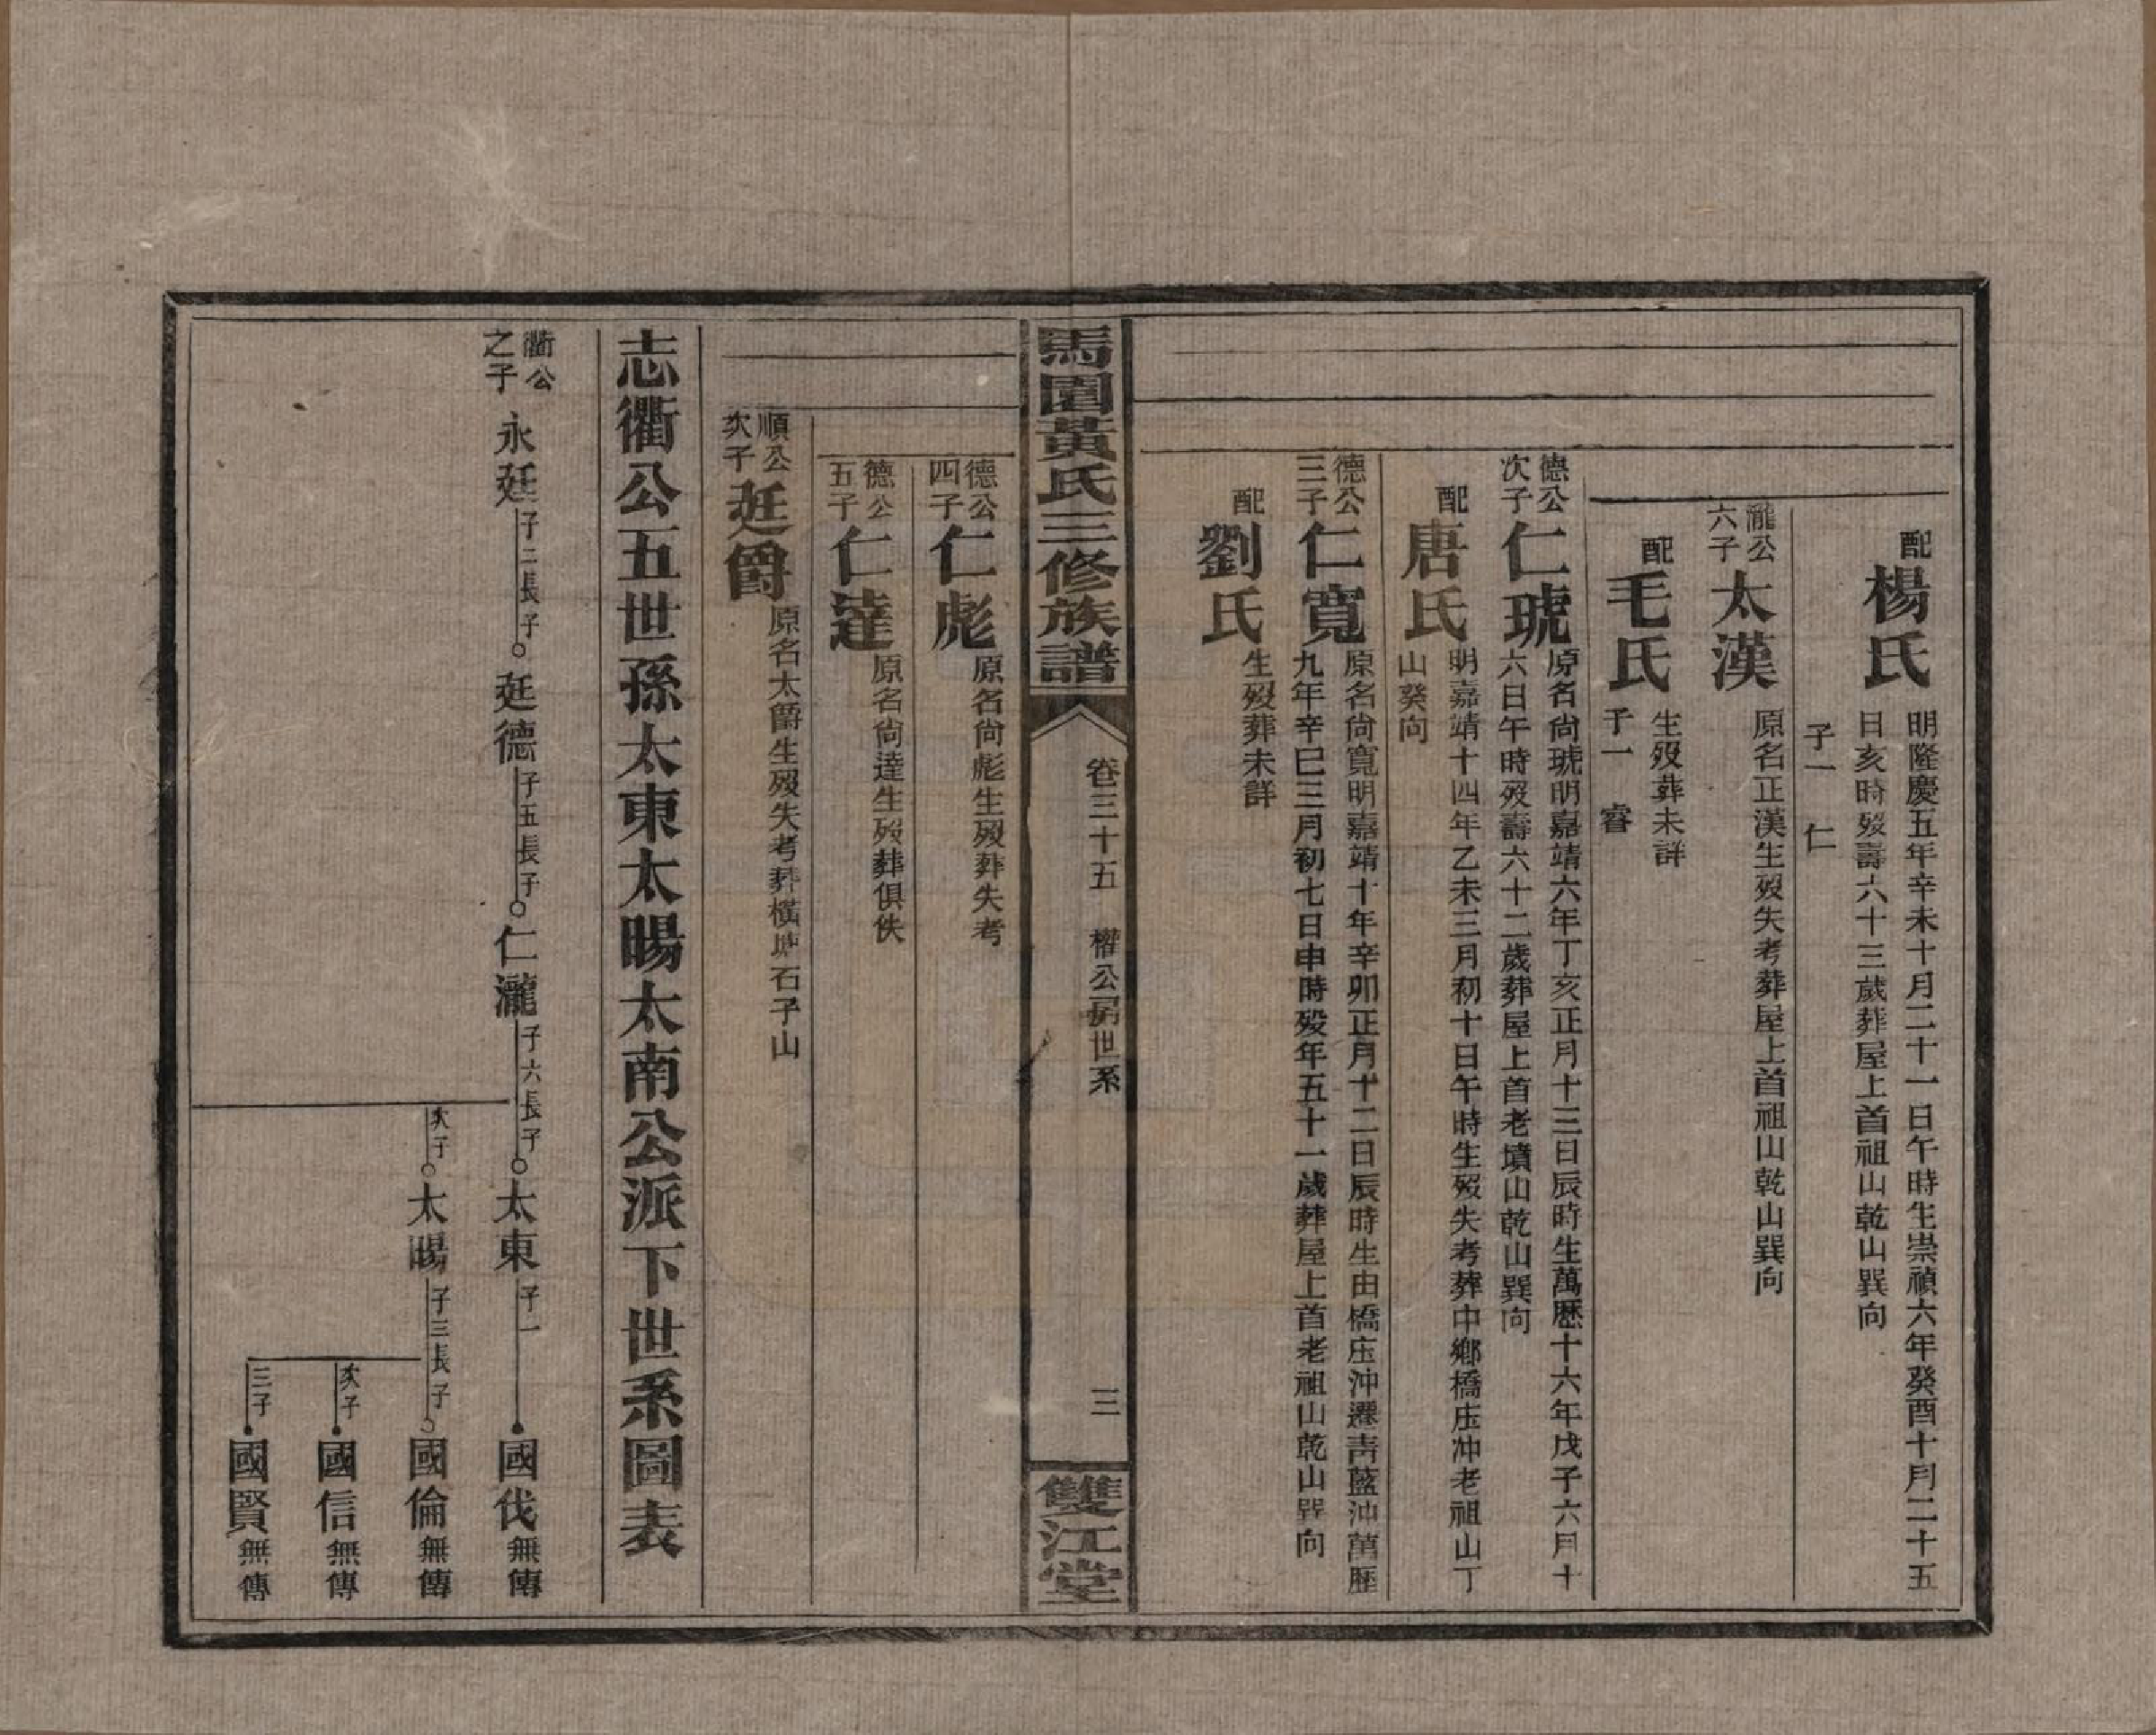 配
楊氏
明隆慶五年辛未十月二十一日午時生崇禎六年癸酉十月二十五
日亥時歿壽六十三歲葬屋上首祖山乾山巽向
子一　仁
瀧公
六子
太漢
原名正漢生歿失考葬屋上首祖山乾山巽向
配
毛氏
生歿葬未詳
子一　睿
德公
次子
仁琥
原名尙琥明嘉靖六年丁亥正月十三日辰時生萬歷十六年戊子六月十
六日午時歿壽六十二歲葬屋上首老墳山乾山巽向
配
唐氏
明嘉靖十四年乙未三月初十日午時生歿失考葬中鄉橋庄冲老祖山丁
山癸向
德公
三子
仁寬
原名尙寬明嘉靖十年辛卯正月十二日辰時生由橋庄沖遷靑藍沖萬歷
九年辛巳三月初七日申時歿年五十一歲葬屋上首老祖山乾山巽向
配
劉氏
生歿葬未詳
馬園黃氏三修族譜
卷三十五　權公房世系
三
雙江堂
德公
四子
仁彪
原名尙彪生歿葬失考
德公
五子
仁達
原名尙達生歿葬俱佚
順公
次子
廷爵
原名太爵生歿失考葬橫塘石子山
志衢公五世孫太東太暘太南公派下世系圖表
衢公
之子
永廷 子二長子 廷德 子五長子 仁瀧 子六長子 太東 子一 國伐無傳
次子 太暘 子三長子 國倫無傳
次子 國信無傳
三子 國賢無傳